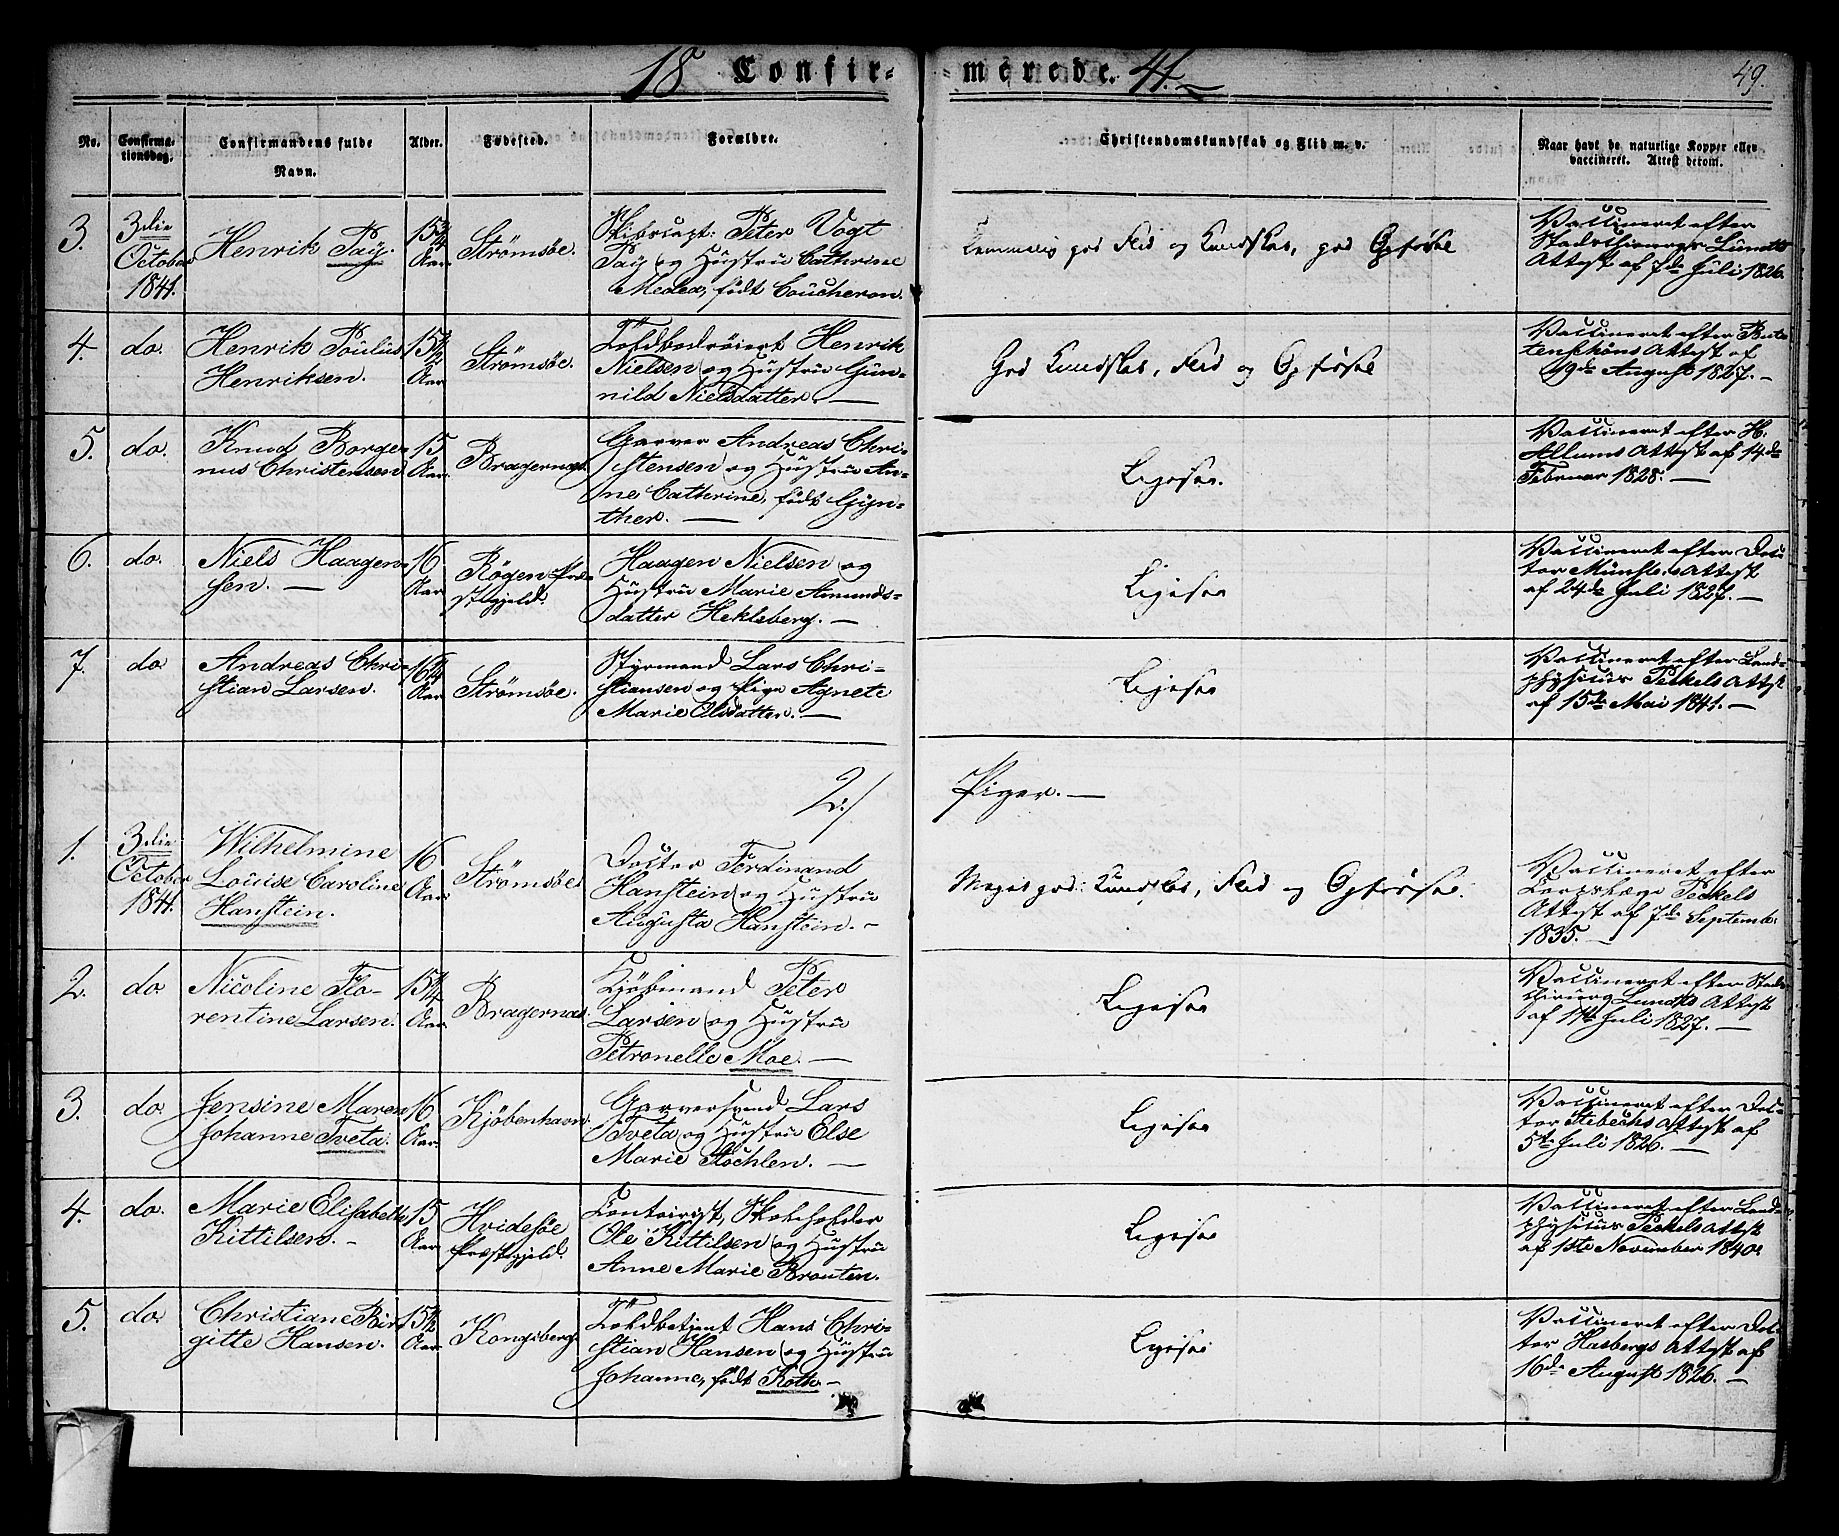 18 Confir- merede. 41.
49.
No.
Confirma-
tionsdag.
Confirmandens fulde
Navn.
Alder.
Fødested.
Forældre.
Christendomskundskab og Flid m. v.
Naar havt de naturlige Kopper eller
vaccineret. Attest derom.
3.
3die
October
1841.
Henrik Pay.
15 3/4
Aar
Strømsøe.
Skibscapt: Peter Vogt
Pay og Hustru Cathrine
Medea, født Coucheron.
Temmelig god Flid og Kundskab, god Opførsel
Vaccineret efter
Stadschirurgus Lunds
Attest af 7de Juli 1826.
4.
do.
Henrik Poulus
Henriksen.
15 1/2
Aar
Strømsøe.
Toldbedrøiert Henrik
Nielsen og Hustru Gun-
nild Nielsdatter. —
God Kundskab, Flid og Opførsel
Vaccineret efter
tenschöns Attest af
19de August 1827. —
5.
do.
Knud Borger
nus Christensen
15
Aar.
Bragernæs.
Garver Andreas Chri-
stensen og Hustru An-
ne Cathrine, født Gyn-
ther. —
Ligesaa.
Vaccineret efter H.
Allums Attest af 14de
Februar 1828. —
6.
do.
Niels Haagen-
sen. —
16
Aar
Røgen Præ-
stegjeld.
Haagen Nielsen og
Hustru Marie Amunds-
datter Hekleberg. —
Ligesaa
Vaccineret efter Doc-
tor Münsters Attest
af 24de Juli 1827. —
7.
do
Andreas Chri-
stian Larsen.
16 1/4
Aar
Strømsøe.
Styrmand Lars Chri-
stiansen og Pige Agnete
Marie Olsdatter. —
Ligesaa
Vaccineret efter Land-
physicus Peckels Attest
af 15de Mai 1841. —
2./ Piger. —
1.
3die
October
1841.
Wilhelmine
Louise Caroline
Hanstein.
16
Aar
Strømsøe
Doctor Ferdinand
Hanstein og Hustru
Augusta Hanstein. -
Meget god Kundskab, Flid og Opførsel.
Vaccineret efter
Corpslæge Peckels
Attest af 7de Septembr
1835. —
2.
do
Nicoline Flo-
rentine Larsen.
15 1/4
Aar
Bragernæs.
Kjøbmand Peter
Larsen og Hustru
Petronelle Moe. —
Ligesaa
Vaccineret efter Stads
chirurg Lunds Attest
af 11te Juli 1827. —
3.
do.
Jensine Maren
Johanne Tveta.
16
Aar.
Kjøbenhavn.
Garversvend Lars
Tveta og Hustru Else
Marie Stochlen. —
Ligesaa
Vaccineret efter Doc-
tor Stibechs Attest af
5te Juli 1826. —
4.
do.
Marie Elisabethe
Kittilsen. -
15
Aar
Hvidesøe
Præstegjeld.
Contoirist, Skoleholder
Ole Kittilsen og Hustru
Anne Marie Brouten.
Ligesaa
Vaccineret efter Land-
physicus Peckels Attest
af 1ste November 1840.
5.
do.
Christiane Bir-
gitte Hansen.
15 1/2
Aar.
Kongsberg
Toldbetjent Hans Chri-
stian Hansen og Hustru
Johanne, født Koth. -
Ligesaa
Vaccineret efter Doc-
tor Hasbergs Attest af
16de August 1826. —